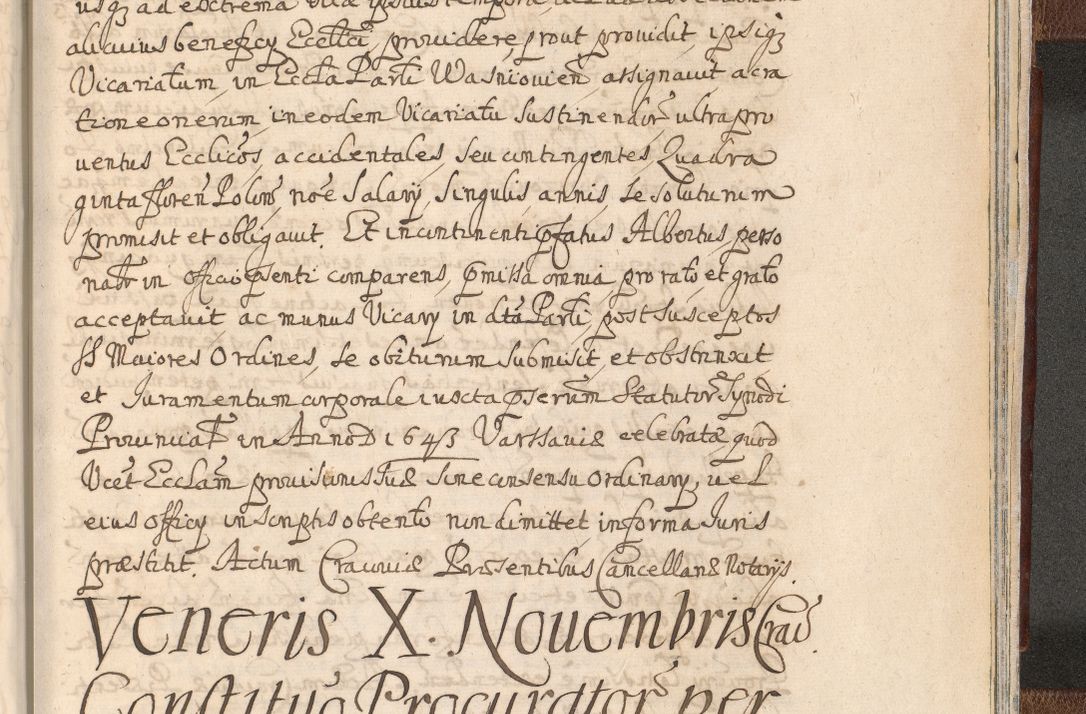 usq₃ ad extrema vitæ ipsius tempora
alicuius beneficy Eccl̃tici, prouidere, prout prouidit, ipsiq₃
Vicariatum, in Eccl̃a Parl̃i Wasniouien̄, assignauit a cra
tione onerum, in eodem Vicariatu Sustinendor̃, ultra pro
uentus Ecclicõs, accidentales, seu contingentes, Quadra
ginta floren̄ Polon̄, noe Salary, singulis, annis, se soluturum
promisit et obligauit. Et incontinenti p̄fatus Albertus perso
nal̃r in officio p̄senti comparens, p̄missa omnia pro rato et grato
acceptauit, ac munus Vicary in d̃ta Parl̃i, post susceptos
SS Maiores Ordines, se obiturum submisit, et obstrinxit
et Iuramentum corporale iuxta p̄serum̄ Statutor̃ Synodi
Prouincial̃ in Anno D 1643 Varssauiæ celebratæ quod
Dcẽt Ecclãm prouisionis suæ sine consensu Ordinary, uel
eius officy in scriptis obtento non dimittet in forma Iuris
præstitit. Actum Cracouiæ Præsentibus Cancellariæ Notarys.
Veneris X. Nouembris Crac̄.
Constituõ Procurator̃ per